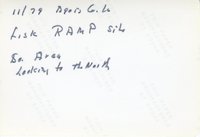 11/79
Lisk RAMP Site
So. Area
Looking to the North